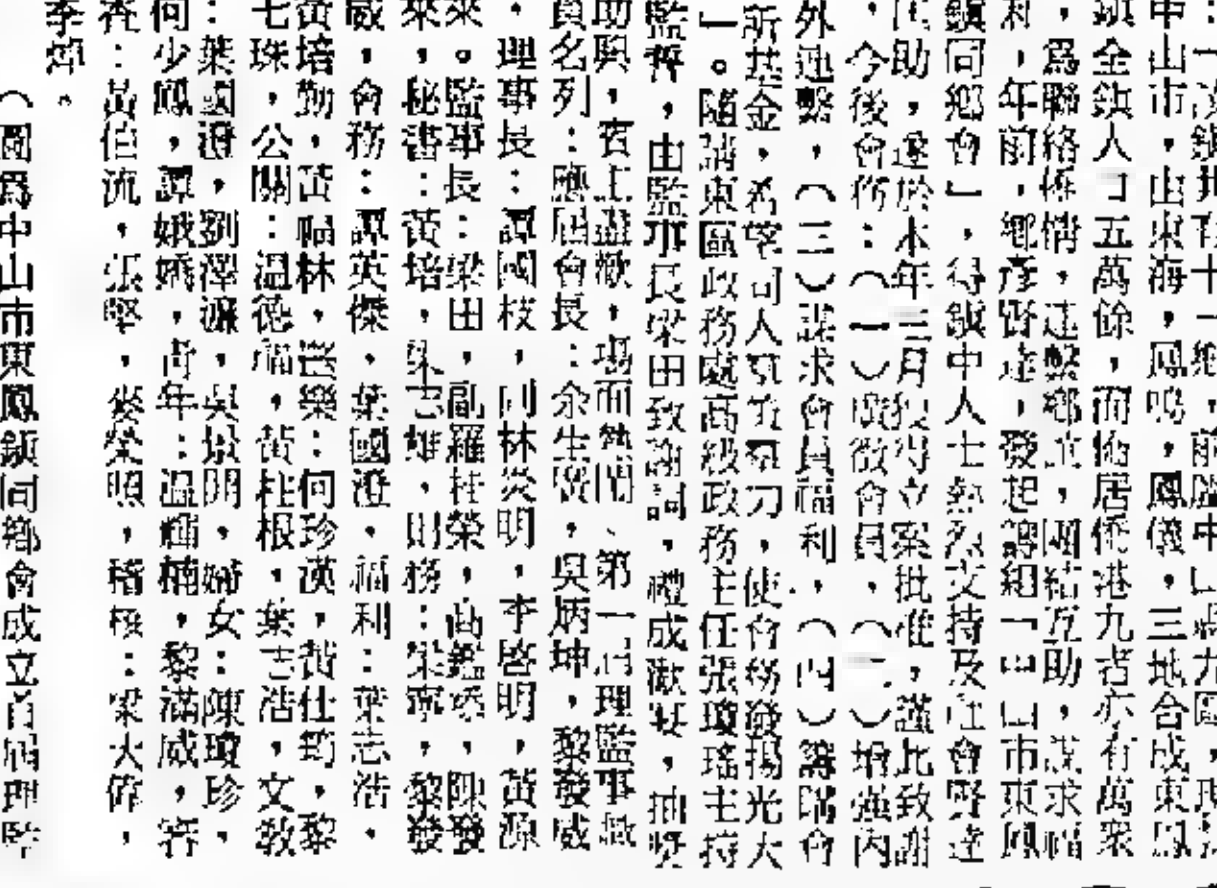 ：一該鎮共有十一鄉，前臨中山第九區，現為
中山市，由東海，鳳鳴，鳳儀，三地合成東鳳
鎮全鎮人口五萬餘，而旅居僑港九者亦有萬眾
，爲聯絡鄉情，連繫鄉誼，團結互助，謀求福
利，年前，鄉彥賢達，發起籌組「中山市東鳳
鎮同鄉會」，得鎮中人士熱烈支持及社會賢達
匡助，遂於本年三月獲得立案批准，謹此致謝
，今後會務：（一）廣徵會員，（二）增強內
外連繫，（三）謀求會員福利，（四）籌購會
所基金，希望同人羣策羣力，使會務發揚光大
」。隨請東區政務處高級政務主任張瓊瑤主持
監誓，由監事長梁田致謝詞，禮成歡宴，抽獎
助興，賓主盡歡，場面熱鬧、第一屆理監事職
員名列：應屆會長：余生廣，吳炳坤，黎發威
，理事長：譚國枝，副林炎明，李啓明，黃源
來。監事長：梁田，副羅桂榮，，陳發
來，秘書：黃培，梁志雄，財務：梁寧，黎發
威，會務：譚英傑，葉國澄，福利：葉志浩，
黃培勤，黃福林，康樂：何珍漢，黃仕筠，黎
七珠，公關：溫德福，黃柱根，葉志浩，文敎
：葉國澄，劉澤濂，吳景開，婦女：陳瓊珍，
何少鳳，譚娥嬌，靑年：溫輝楠，黎滿威，審
核：黃伯流，張堅，麥榮照，稽核：梁大偉，
李焯。
（圖爲中山市東鳳鎮同鄉會成立首屆理監